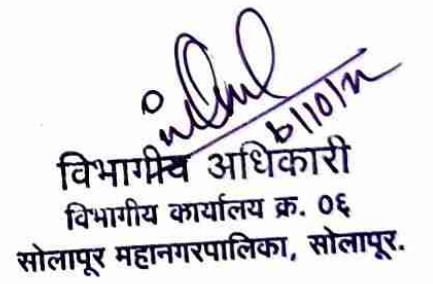 विभागीय अधिकारी
विभागीय कार्यालय क्र. ०६
सोलापूर महानगरपालिका, सोलापूर.